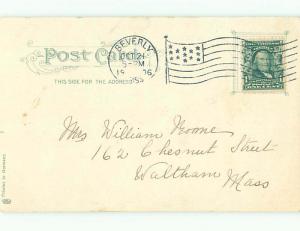 Post Card
THIS SIDE FOR THE ADDRESS
BEVERLY
OCT 21
5-PM
MASS
Mrs William Noone
162 Chesnut Street
Waltham
Mass
Printed in Germany